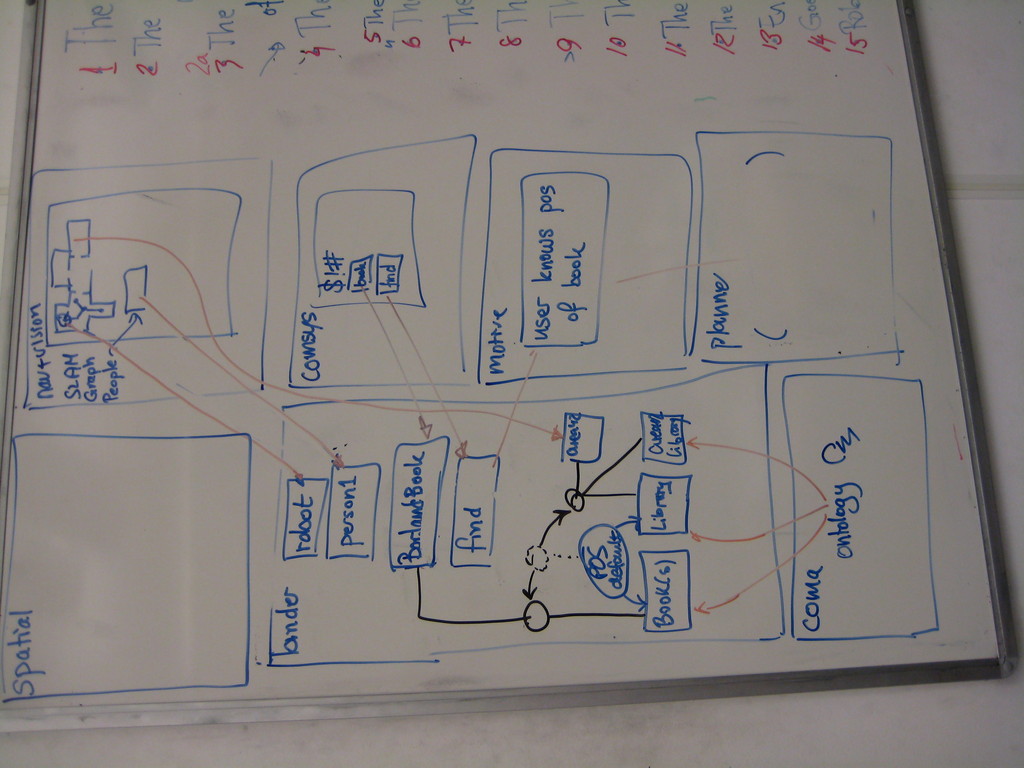 spatial
nav+vision
SLAM
Graph
People
binder
robot
person1
BorlandBook
find
POS
default
Book(s)
Library
area42
area#1
Library
comsys
$!#
book
find
motive
user knows pos
of book
planner
( )
coma
ontology
1 The
2 The
2a
3 The
of
4 The
5 The
6 The
7 The
8 The
9 The
10 Th
11 The
12 The
13 En
14 Goo
15 Rob